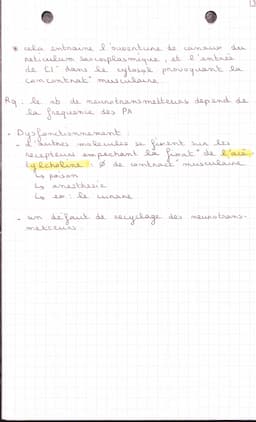 * cela entraine l'ouverture de canaux du
reticulum sarcoplasmique, et l'entrée
de Cl⁻ dans le cytosol provoquant la
contract° musculaire.
Rq : le nb de neurotransmetteurs dépend de
la fréquence des PA
- Dysfonctionnement :
- d'autres molécules se fixent sur les
récepteurs empêchant la fixat° de l'acé
tylcholine : Ø de contract° musculaire
↳ poison
↳ anesthésie
↳ ex : le curare
- un défaut de recyclage des neurotrans-
metteurs.